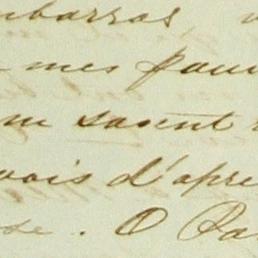 mbarras, v
mes pauv
me savent
vois d'apre
se. O Pa